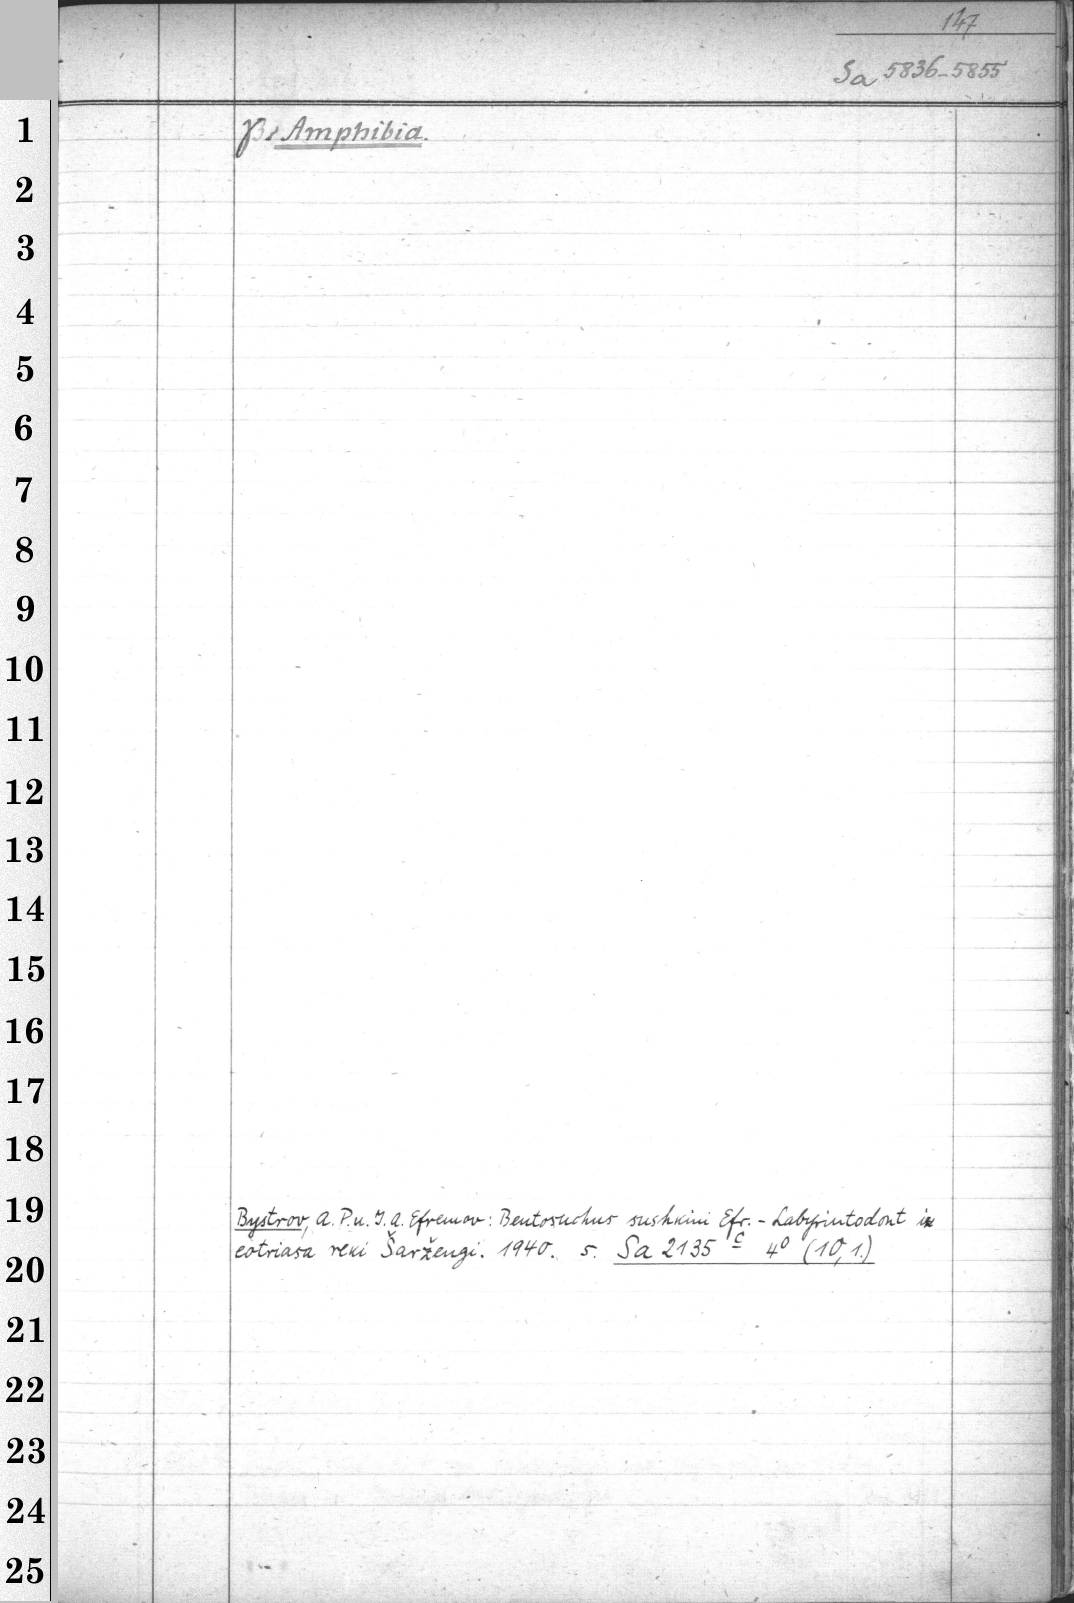 147
Sa 5836-5855
1
Amphibia.
2
3
4
5
6
7
8
9
10
11
12
13
14
15
16
17
18
19
Bystrov, A. P. u. I. A. Efremov: Bentosuchus sushkini Efr. - Labyrintodont iz
eotriasa reki Šaržengi. 1940. s. Sa 2135 c 4° (10,1.)
20
21
22
23
24
25